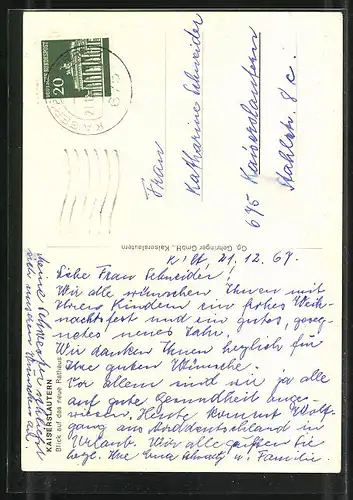 DEUTSCHE BUNDESPOST
20
675
Frau
Katharine Schneider
675 Kaiserslautern
Stahlstr. 8 c.
Gg. Gehringer GmbH., Kaiserslautern
KAISERSLAUTERN
Blick auf das neue Rathaus
K'lt, 21. 12. 67.
Liebe Frau Schneider!
Wir alle wünschen Ihnen mit
Ihren Kindern ein frohes Weih-
nachtsfest und ein gutes, geseg-
netes neues Jahr.
Wir danken Ihnen herzlich für
Ihre guten Wünsche.
Vor allem sind wir ja alle
auf gute Gesundheit ange-
wiesen. Heute kommt Wolf-
gang aus Norddeutschland in
Urlaub. Wir alle grüßen Sie
herzl. Ihre Erna u. Familie.